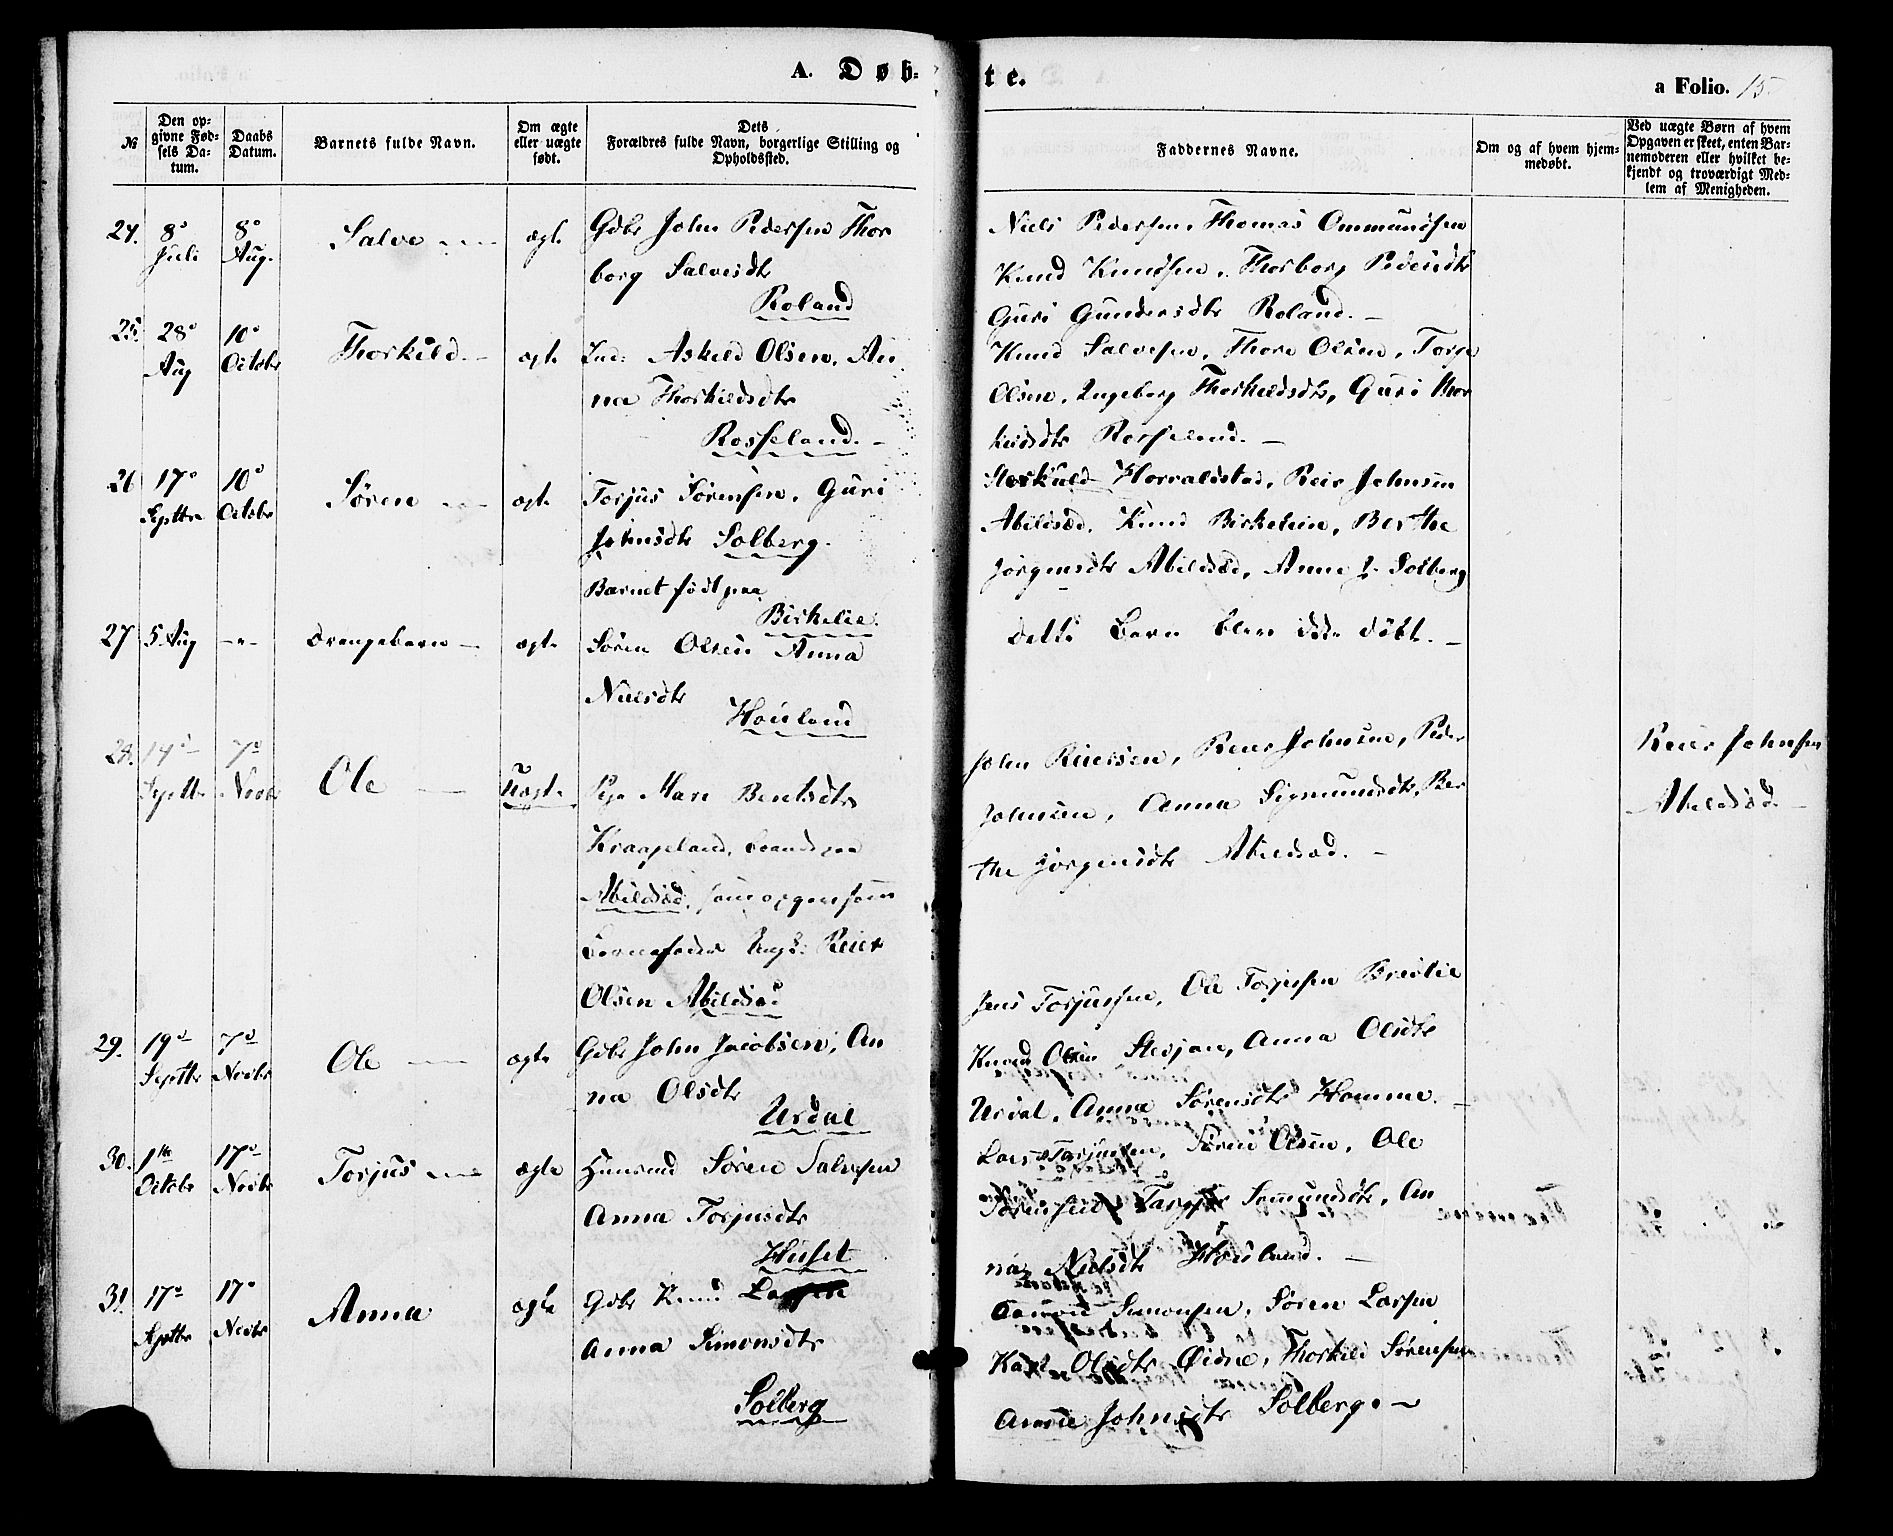 A. Døb-
te.
a Folio. 15
№
Den op-
givne Fød-
sels Da-
tum.
Daabs
Datum.
Barnets fulde Navn.
Om ægte
eller uægte
født.
Dets
Forældres fulde Navn, borgerlige Stilling og
Opholdssted.
Faddernes Navne.
Om og af hvem hjem-
medøbt.
Ved uægte Børn af hvem
Opgaven er skeet, enten Bar-
nemoderen eller hvilket be-
kjendt og troværdigt Med-
lem af Menigheden.
24. 8de Juli
8de Aug.
Salve
ægte
Gdbr John Pedersen Thor
borg Salvesdtr
Roland
Niels Pedersen, Thomas Ommundsen
Knud Knudsen, Thorborg Pedersdtr
Guri Gundersdtr Roland. –
25. 28de Aug
10de Octobr
Thorkild. –
ægte
Ind: Askild Olsen, An
na Thorkildsdtr
Rosseland. –
Knud Salvesen, Thore Olsen, Torge
Olsen, Ingeborg Thorkildsdtr, Guri Thor
kildsdtr Rosseland. –
26 17de Septbr
10de Octobr
Søren
ægte
Torjus Sørensen, Guri
Johnsdtr Solberg.
Barnet født paa
Birkelie.
Horraldstad, Reier Johnsen
Abildsød, Knud Birkeleie, Berthe
Jørgensdtr Abildsød, Anne J. Solberg
27 5 Aug
–"–
Drengebarn –
ægte
Søren Olsen Anna
Nielsdtr
Houland
Dette Barn blev ikke døbt. –
28. 14de Septbr
7de Novbr
Ole
Uægte
Pige Mari Bentsdtr
Kraageland, boende paa
Abildsød, som opgav som
Barnefader Ungk: Reier
Olsen Abildsød
John Reiersen, Reier Johnsen, Peder
Johnsen, Anna Sigmundsdtr, Ber
the Jørgensdtr Abildsød. –
Reier Johnsen
Abildsød. –
29. 19de Septbr
7de Novbr
Ole
ægte
Gdbr John Jacobsen, An
na Olsdtr
Urdal
Jens Torjussen, Ole Torjusen Breilie
Knud Olsen Sterjan, Anna Olsdtr
Urdal, Anna Sørensdtr Homme. –
30. 1ste Octobr
17de Novbr
Torjus
ægte
Huusmd Søren Salvesen
Anna Torjusdtr
Huset
Lars Torjussen, Søren Olsen, Ole
Sørensen, Samundsdtr, An
na Nielsdtr Houland. –
31. 17de Septbr
17de Novbr
Anna
ægte
Gdbr Knud Larsen
Anna Simonsdtr
Solberg
Simonsen, Søren Larsen
Olsdtr Øidne, Thorkild Sørensen
Johnsdtr Solberg. –